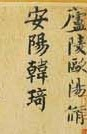 廬陵歐陽脩
安陽韓琦